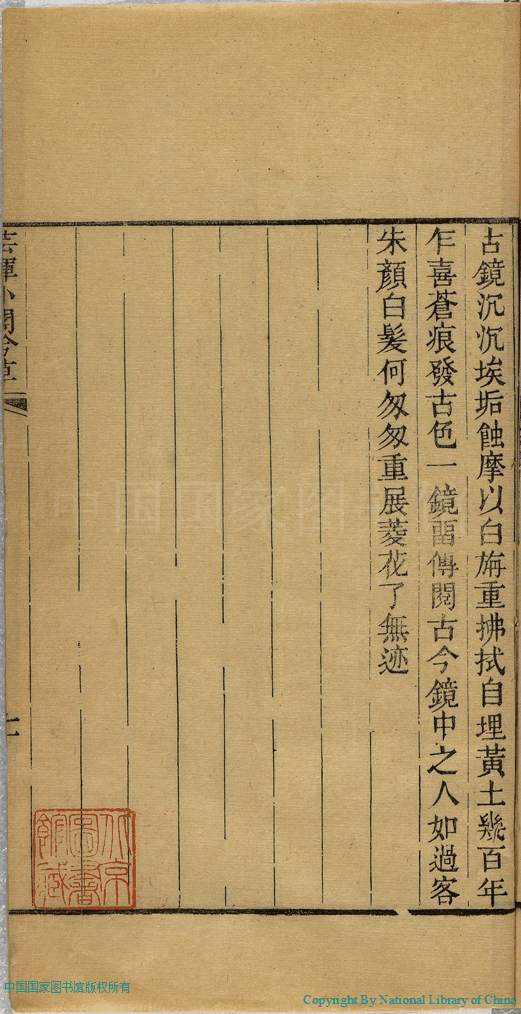 古鏡沉沉埃垢蝕摩以白旃重拂拭自埋黃土幾百年
乍喜蒼痕發古色一鏡畱傳閱古今鏡中之人如過客
朱顏白髮何匆匆重展菱花了無迹
芸暉小閣吟草
北京圖書館藏
中国国家图书馆版权所有
Copyright By National Library of China